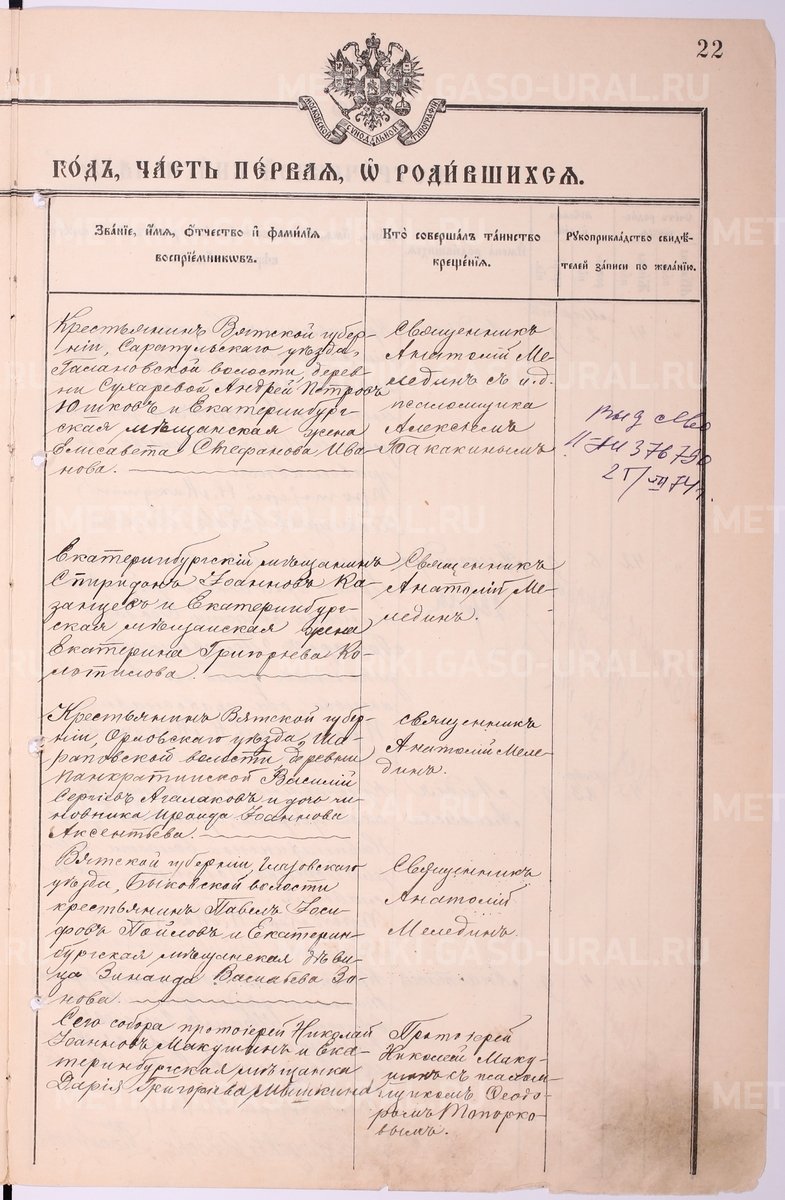 22
МОСКОВСКОЙ СѴНОДАЛЬНОЙ ТИПОГРАФІИ
ГО́ДЪ, ЧА́СТЬ ПЕ́РВАЯ, Ѡ҆ РОДИ́ВШИХСЯ.
Зва́нїе, и҆́мѧ, ѻ҆́тчество и҆ фами́лїѧ
воспрїе́мникѡвъ.
Кто̀ соверша́лъ та́инство
креще́нїѧ.
Рꙋкоприкла́дство свидѣ́-
телей за́писи по жела́нїю.
Крестьянинъ Вятской губер-
ніи, Сарапульскаго уѣзда,
Галановской волости, дерев-
ни Сухаревой Андрей Петровъ
Юшковъ и Екатеринбург-
ская мѣщанская жена
Елисавета Стефанова Ива-
нова.
Священникъ
Анатолій Ме-
лединъ съ и.д.
псаломщика
Алексѣемъ
Бакакинымъ
выд
376790
Екатеринбургскій мѣщанинъ
Спиридонъ Іоанновъ Ка-
занцевъ и Екатеринбург-
ская мѣщанская жена
Екатерина Григорьева Ко-
лотилова.
Священникъ
Анатолій Ме-
лединъ.
Крестьянинъ Вятской губер-
ніи, Орловскаго уѣзда, Ша-
раповской волости, деревни
Панкратинской Василій
Сергѣевъ Агалаковъ и дочь чи-
новника Ираида Іоаннова
Аксентьева.
священникъ
Анатолій Меле-
динъ.
Вятской губерніи, Глазовскаго
уѣзда, Быковской волости
крестьянинъ Павелъ Іоси-
фовъ Пойловъ и Екатерин-
бургская мѣщанская дѣви-
ца Зинаида Васильева Зо-
нова.
Священникъ
Анатолій
Мелединъ.
Сего собора протоіерей Николай
Іоанновъ Макушинъ и Ека-
теринбургская мѣщанка
Дарія Григоріева Мышкина
Протоіерей
Николай Маку-
шинъ съ псалом-
щикомъ Ѳеодо-
ромъ Топорко-
вымъ.
METRIKI.GASO-URAL.RU